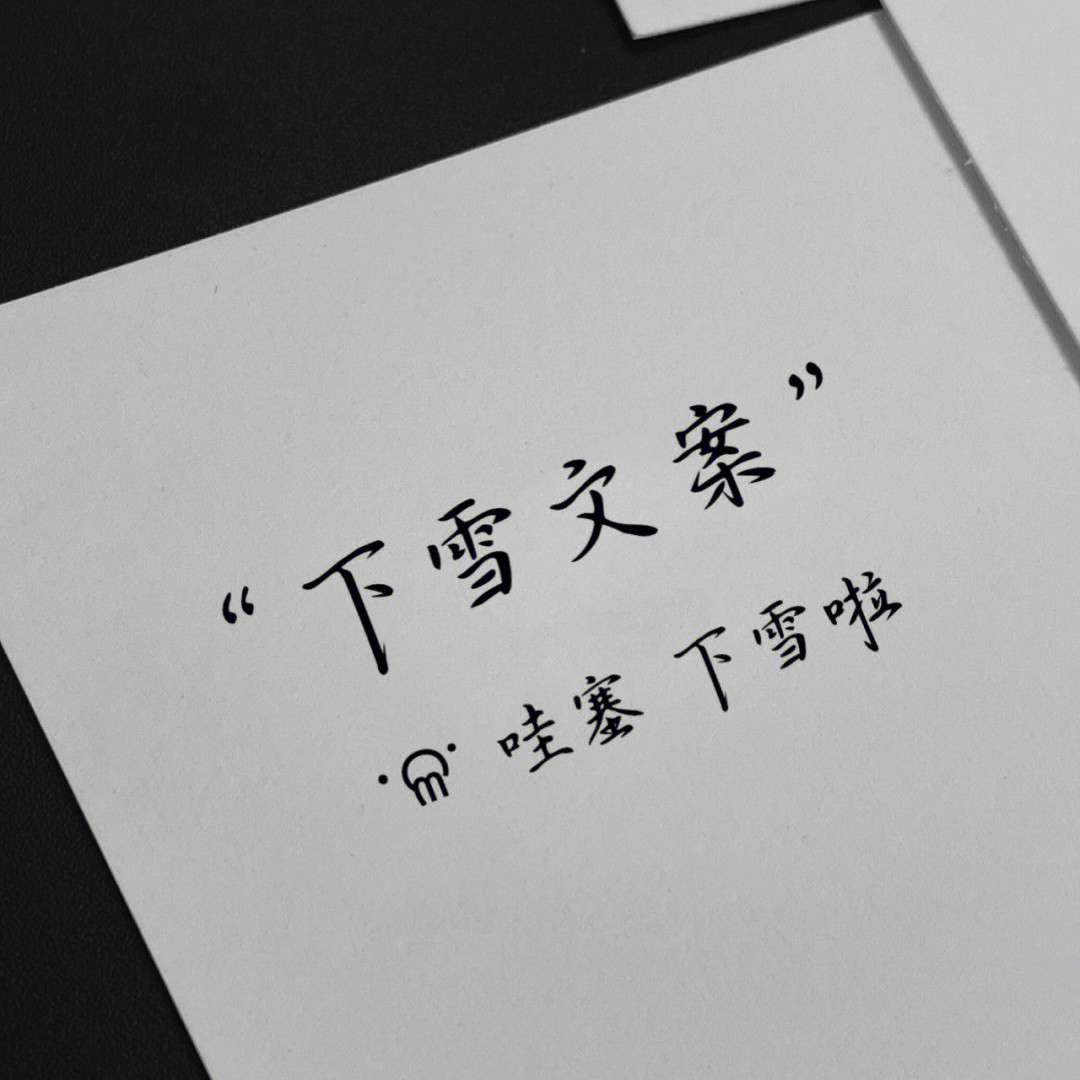 “下雪文案”
·᷄ࡇ·᷅ 哇塞 下雪啦